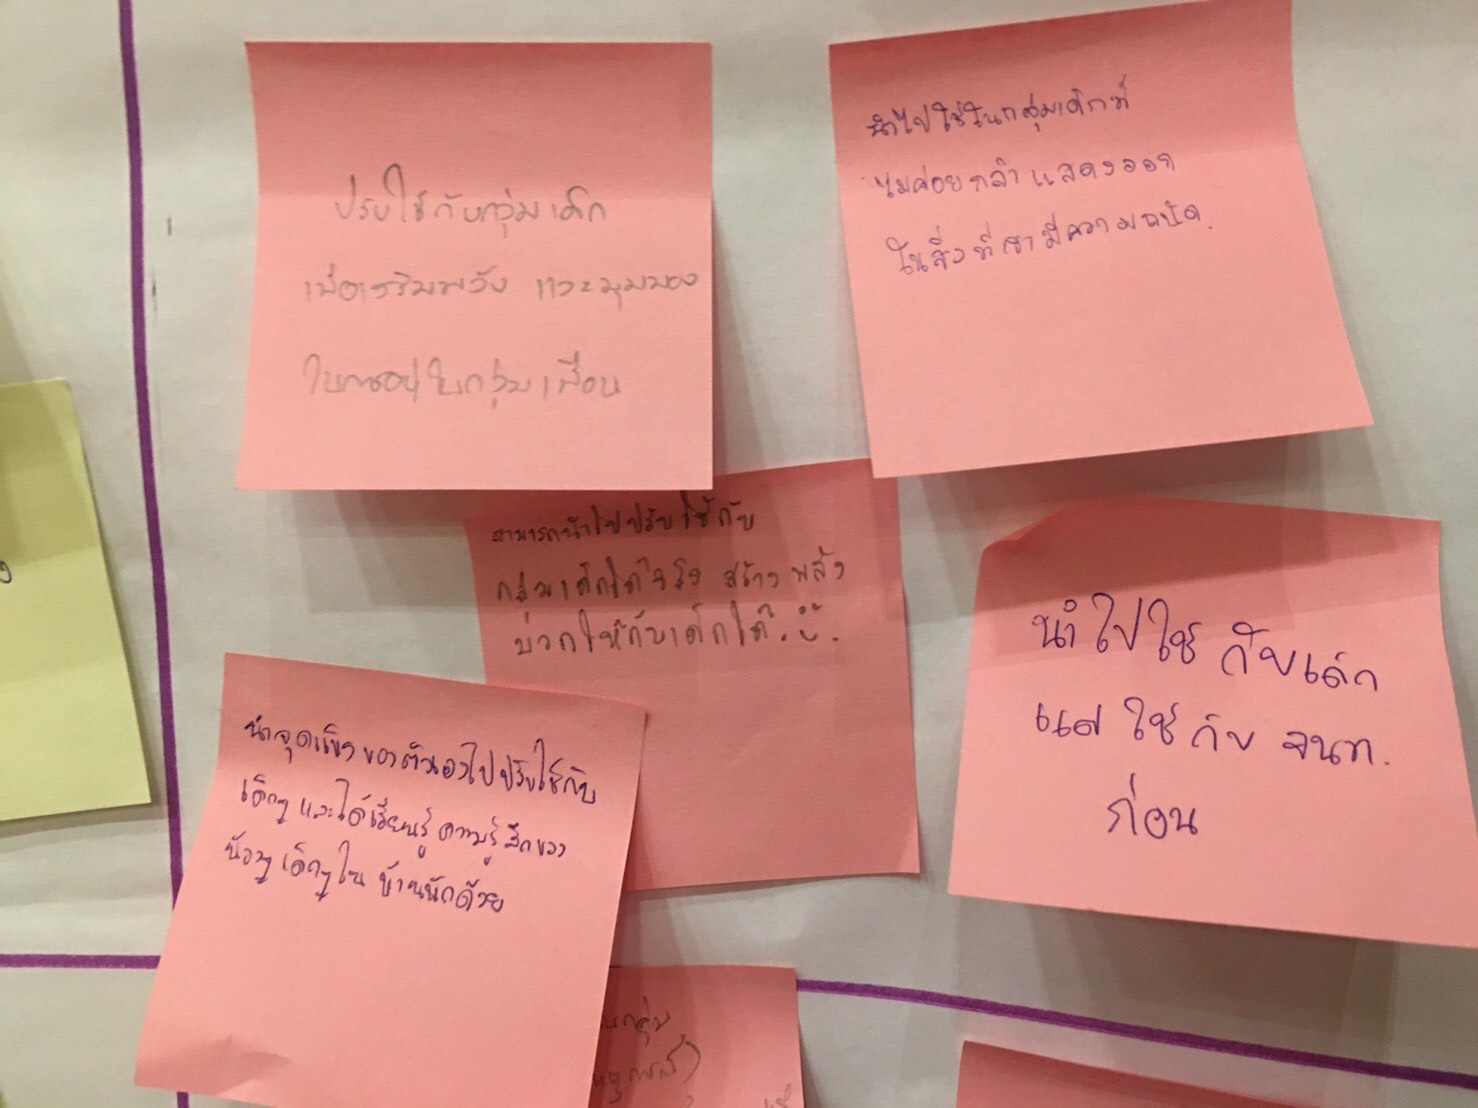 ปรับใช้กับกลุ่มเด็ก
เพื่อเสริมพลัง และมุมมอง
ในการอยู่ในกลุ่มเพื่อน
นำไปใช้ในกลุ่มเด็กที่
ไม่ค่อยกล้าแสดงออก
ในสิ่งที่เขามีความถนัด.
สามารถนำไปปรับใช้กับ
กลุ่มเด็กได้จริง สร้างพลัง
บวกให้กับเด็กได้.
นำไปใช้กับเด็ก
แต่ ใช้กับ จนท.
ก่อน
นำจุดแข็งของตัวเองไปปรับใช้กับ
เด็กๆ และได้เรียนรู้ความรู้สึกของ
น้องๆ เด็กๆ ใน บ้านพักด้วย